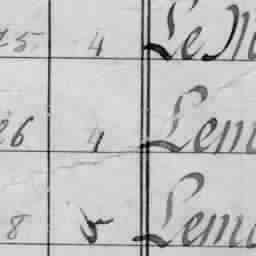 25 4 Le M
26 4 Lem
8 5 Lem